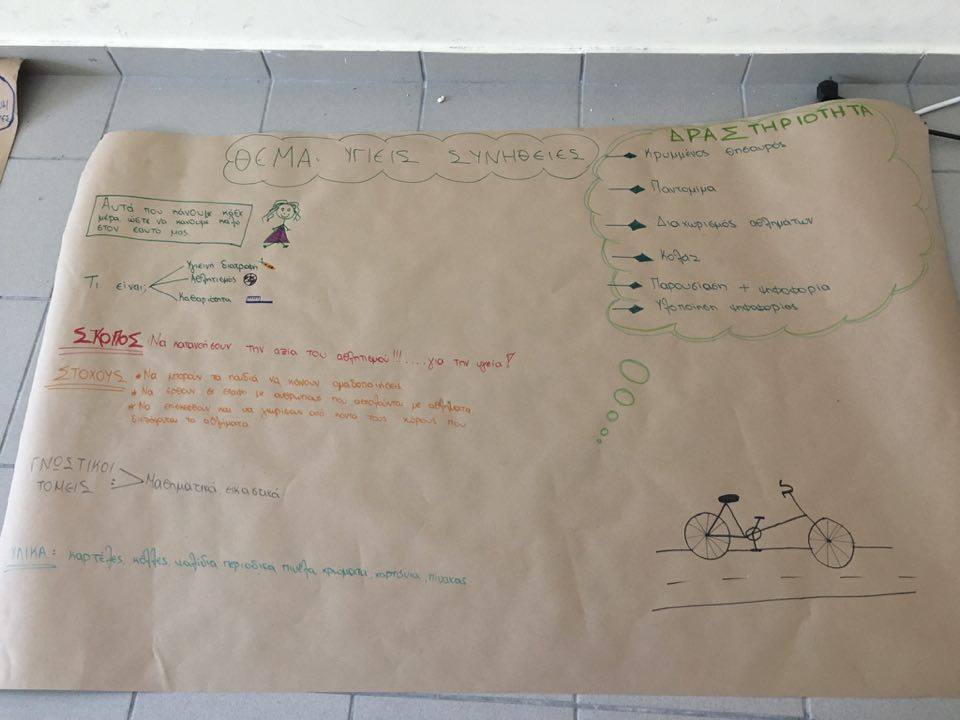 ΘΕΜΑ: ΥΓΙΕΙΣ ΣΥΝΗΘΕΙΕΣ
Αυτά που κάνουμε κάθε
μέρα ώστε να κάνουμε καλό
στον εαυτό μας.
Τι είναι;
Υγιεινή διατροφή
Αθλητισμός
Καθαριότητα
ΣΚΟΠΟΣ: Να κατανοήσουν την αξία του αθλητισμού!!!....για την υγεία!
ΣΤΟΧΟΥΣ • Να μπορούν τα παιδιά να κάνουν ομαδοποιήσεις
• Να έρθουν σε επαφή με ανθρώπους που ασχολούνται με αθλήματα
• Να επισκεφθούν και να γνωρίσουν από κοντά τους χώρους που
διεξάγονται τα αθλήματα
ΓΝΩΣΤΙΚΟΙ
ΤΟΜΕΙΣ : Μαθηματικά, εικαστικά
ΥΛΙΚΑ: καρτέλες, κόλλες, ψαλίδια περιοδικα πινέλα, χρώματα, χαρτόνια, πίνακας
ΔΡΑΣΤΗΡΙΟΤΗΤΑ
Κρυμμένος θησαυρός
Παντομίμα
Διαχωρισμός αθλημάτων
Κολάζ
Παρουσίαση + ψηφοφορία
Υλοποίηση ψηφοφορίας